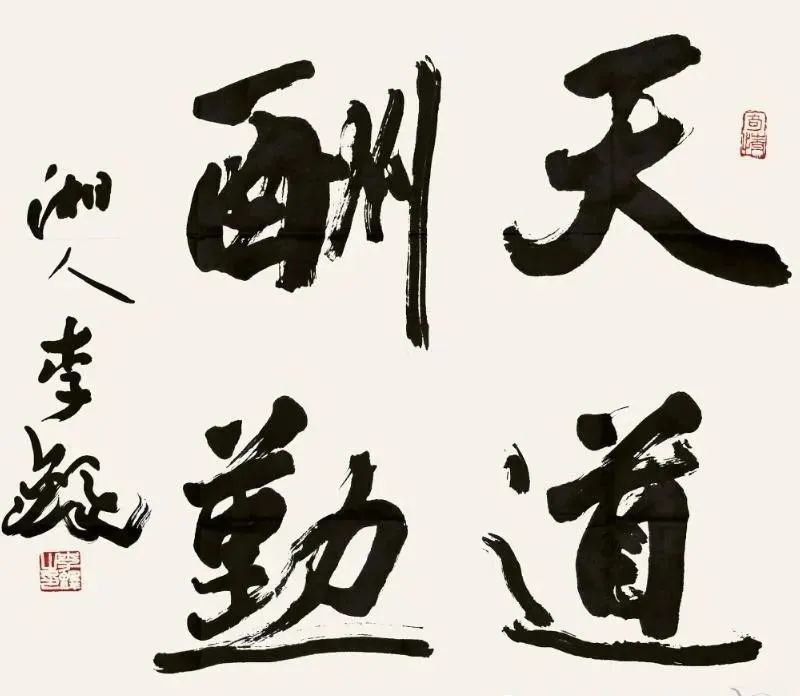 天道
酬勤
湘人李鐸